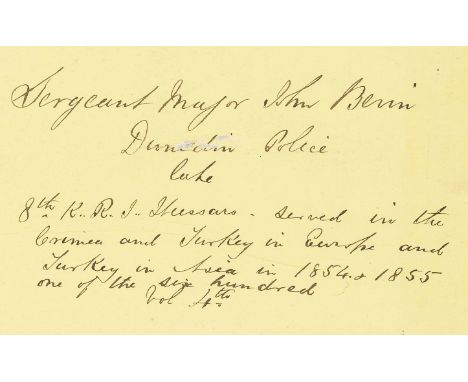 Sergeant Major John Berin
Police
late
8th K. R. I. Hussars - served in the
Crimea and Turkey in Europe and
Turkey in Asia in 1854 & 1855
one of the six hundred
Vol 4th